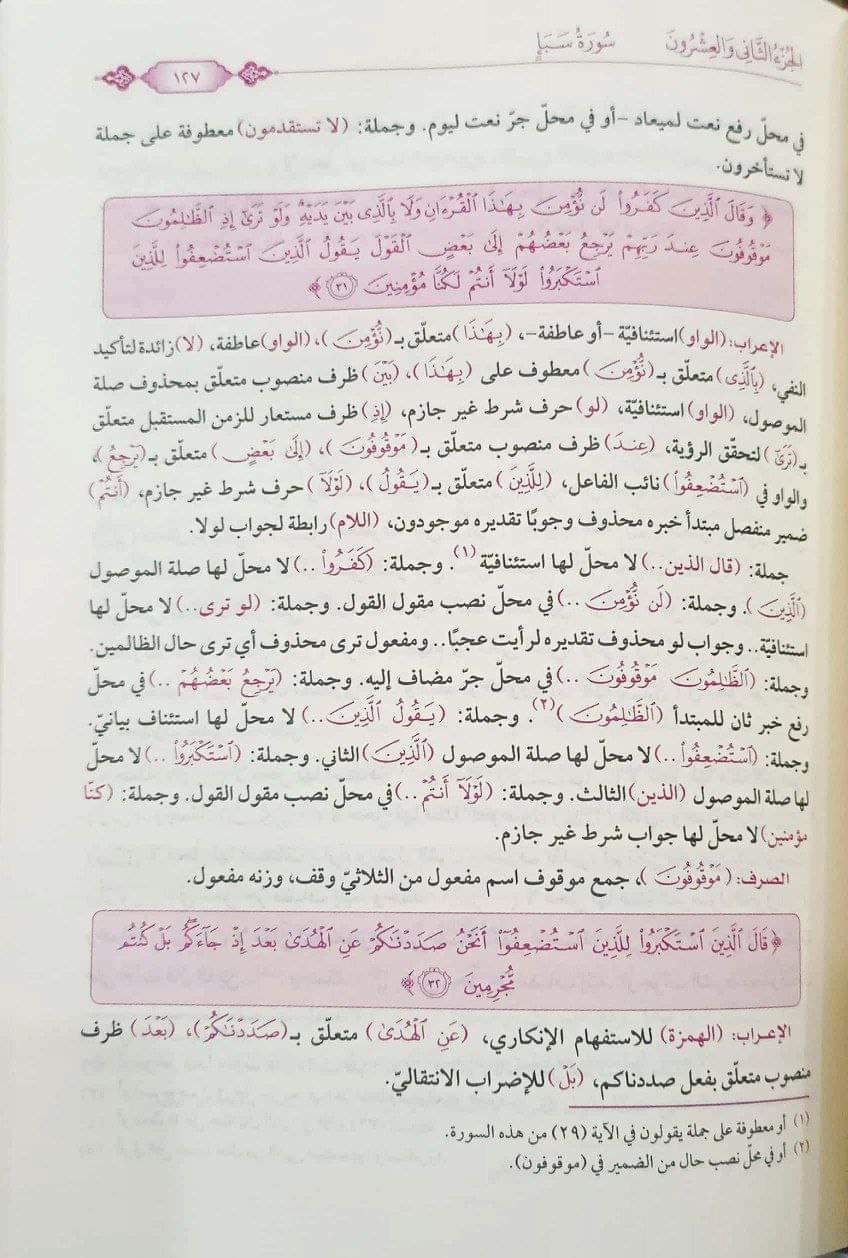 الجُزءُ الثَّانِي وَالعِشْرُونَ
سُورَةُ سَبَإٍ
١٢٧
في محلّ رفع نعت لميعاد -أو في محلّ جرّ نعت ليوم. وجملة: (لا تستقدمون) معطوفة على جملة
لا تستأخرون.
﴿ وَقَالَ ٱلَّذِينَ كَفَرُوا۟ لَن نُّؤْمِنَ بِهَٰذَا ٱلْقُرْءَانِ وَلَا بِٱلَّذِى بَيْنَ يَدَيْهِ ۗ وَلَوْ تَرَىٰٓ إِذِ ٱلظَّٰلِمُونَ
مَوْقُوفُونَ عِندَ رَبِّهِمْ يَرْجِعُ بَعْضُهُمْ إِلَىٰ بَعْضٍ ٱلْقَوْلَ يَقُولُ ٱلَّذِينَ ٱسْتُضْعِفُوا۟ لِلَّذِينَ
ٱسْتَكْبَرُوا۟ لَوْلَآ أَنتُمْ لَكُنَّا مُؤْمِنِينَ ٣١ ﴾
الإعراب: (الواو) استئنافيّة -أو عاطفة-، (بِهَٰذَا) متعلّق بـ(نُّؤْمِنَ)، (الواو) عاطفة، (لا) زائدة لتأكيد
النفي، (بِٱلَّذِى) متعلّق بـ(نُّؤْمِنَ) معطوف على (بِهَٰذَا)، (بَيْنَ) ظرف منصوب متعلّق بمحذوف صلة
الموصول، (الواو) استئنافيّة، (لو) حرف شرط غير جازم، (إِذِ) ظرف مستعار للزمن المستقبل متعلّق
بـ(تَرَىٰٓ) لتحقّق الرؤية، (عِندَ) ظرف منصوب متعلّق بـ(مَوْقُوفُونَ)، (إِلَىٰ بَعْضٍ) متعلّق بـ(يَرْجِعُ)،
والواو في (ٱسْتُضْعِفُوا۟) نائب الفاعل، (لِلَّذِينَ) متعلّق بـ(يَقُولُ)، (لَوْلَآ) حرف شرط غير جازم، (أَنتُمْ)
ضمير منفصل مبتدأ خبره محذوف وجوبًا تقديره موجودون، (اللام) رابطة لجواب لولا.
جملة: (قال الذين..) لا محلّ لها استئنافيّة (١). وجملة: (كَفَرُوا۟ ..) لا محلّ لها صلة الموصول
(ٱلَّذِينَ). وجملة: (لَن نُّؤْمِنَ ..) في محلّ نصب مقول القول. وجملة: (لو ترى..) لا محلّ لها
استئنافيّة.. وجواب لو محذوف تقديره لرأيت عجبًا.. ومفعول ترى محذوف أي ترى حال الظالمين.
وجملة: (ٱلظَّٰلِمُونَ مَوْقُوفُونَ ..) في محلّ جرّ مضاف إليه. وجملة: (يَرْجِعُ بَعْضُهُمْ ..) في محلّ
رفع خبر ثان للمبتدأ (ٱلظَّٰلِمُونَ) (٢). وجملة: (يَقُولُ ٱلَّذِينَ..) لا محلّ لها استئناف بيانيّ.
وجملة: (ٱسْتُضْعِفُوا۟ ..) لا محلّ لها صلة الموصول (ٱلَّذِينَ) الثاني. وجملة: (ٱسْتَكْبَرُوا۟ ..) لا محلّ
لها صلة الموصول (الذين) الثالث. وجملة: (لَوْلَآ أَنتُمْ ..) في محلّ نصب مقول القول. وجملة: (كنّا
مؤمنين) لا محلّ لها جواب شرط غير جازم.
الصرف: (مَوْقُوفُونَ)، جمع موقوف اسم مفعول من الثلاثيّ وقف، وزنه مفعول.
﴿ قَالَ ٱلَّذِينَ ٱسْتَكْبَرُوا۟ لِلَّذِينَ ٱسْتُضْعِفُوٓا۟ أَنَحْنُ صَدَدْنَٰكُمْ عَنِ ٱلْهُدَىٰ بَعْدَ إِذْ جَآءَكُم ۖ بَلْ كُنتُم
مُّجْرِمِينَ ٣٢ ﴾
الإعراب: (الهمزة) للاستفهام الإنكاري، (عَنِ ٱلْهُدَىٰ) متعلّق بـ(صَدَدْنَٰكُمْ)، (بَعْدَ) ظرف
منصوب متعلّق بفعل صددناكم، (بَلْ) للإضراب الانتقاليّ.
(١) أو معطوفة على جملة يقولون في الآية (٢٩) من هذه السورة.
(٢) أو في محلّ نصب حال من الضمير في (موقوفون).